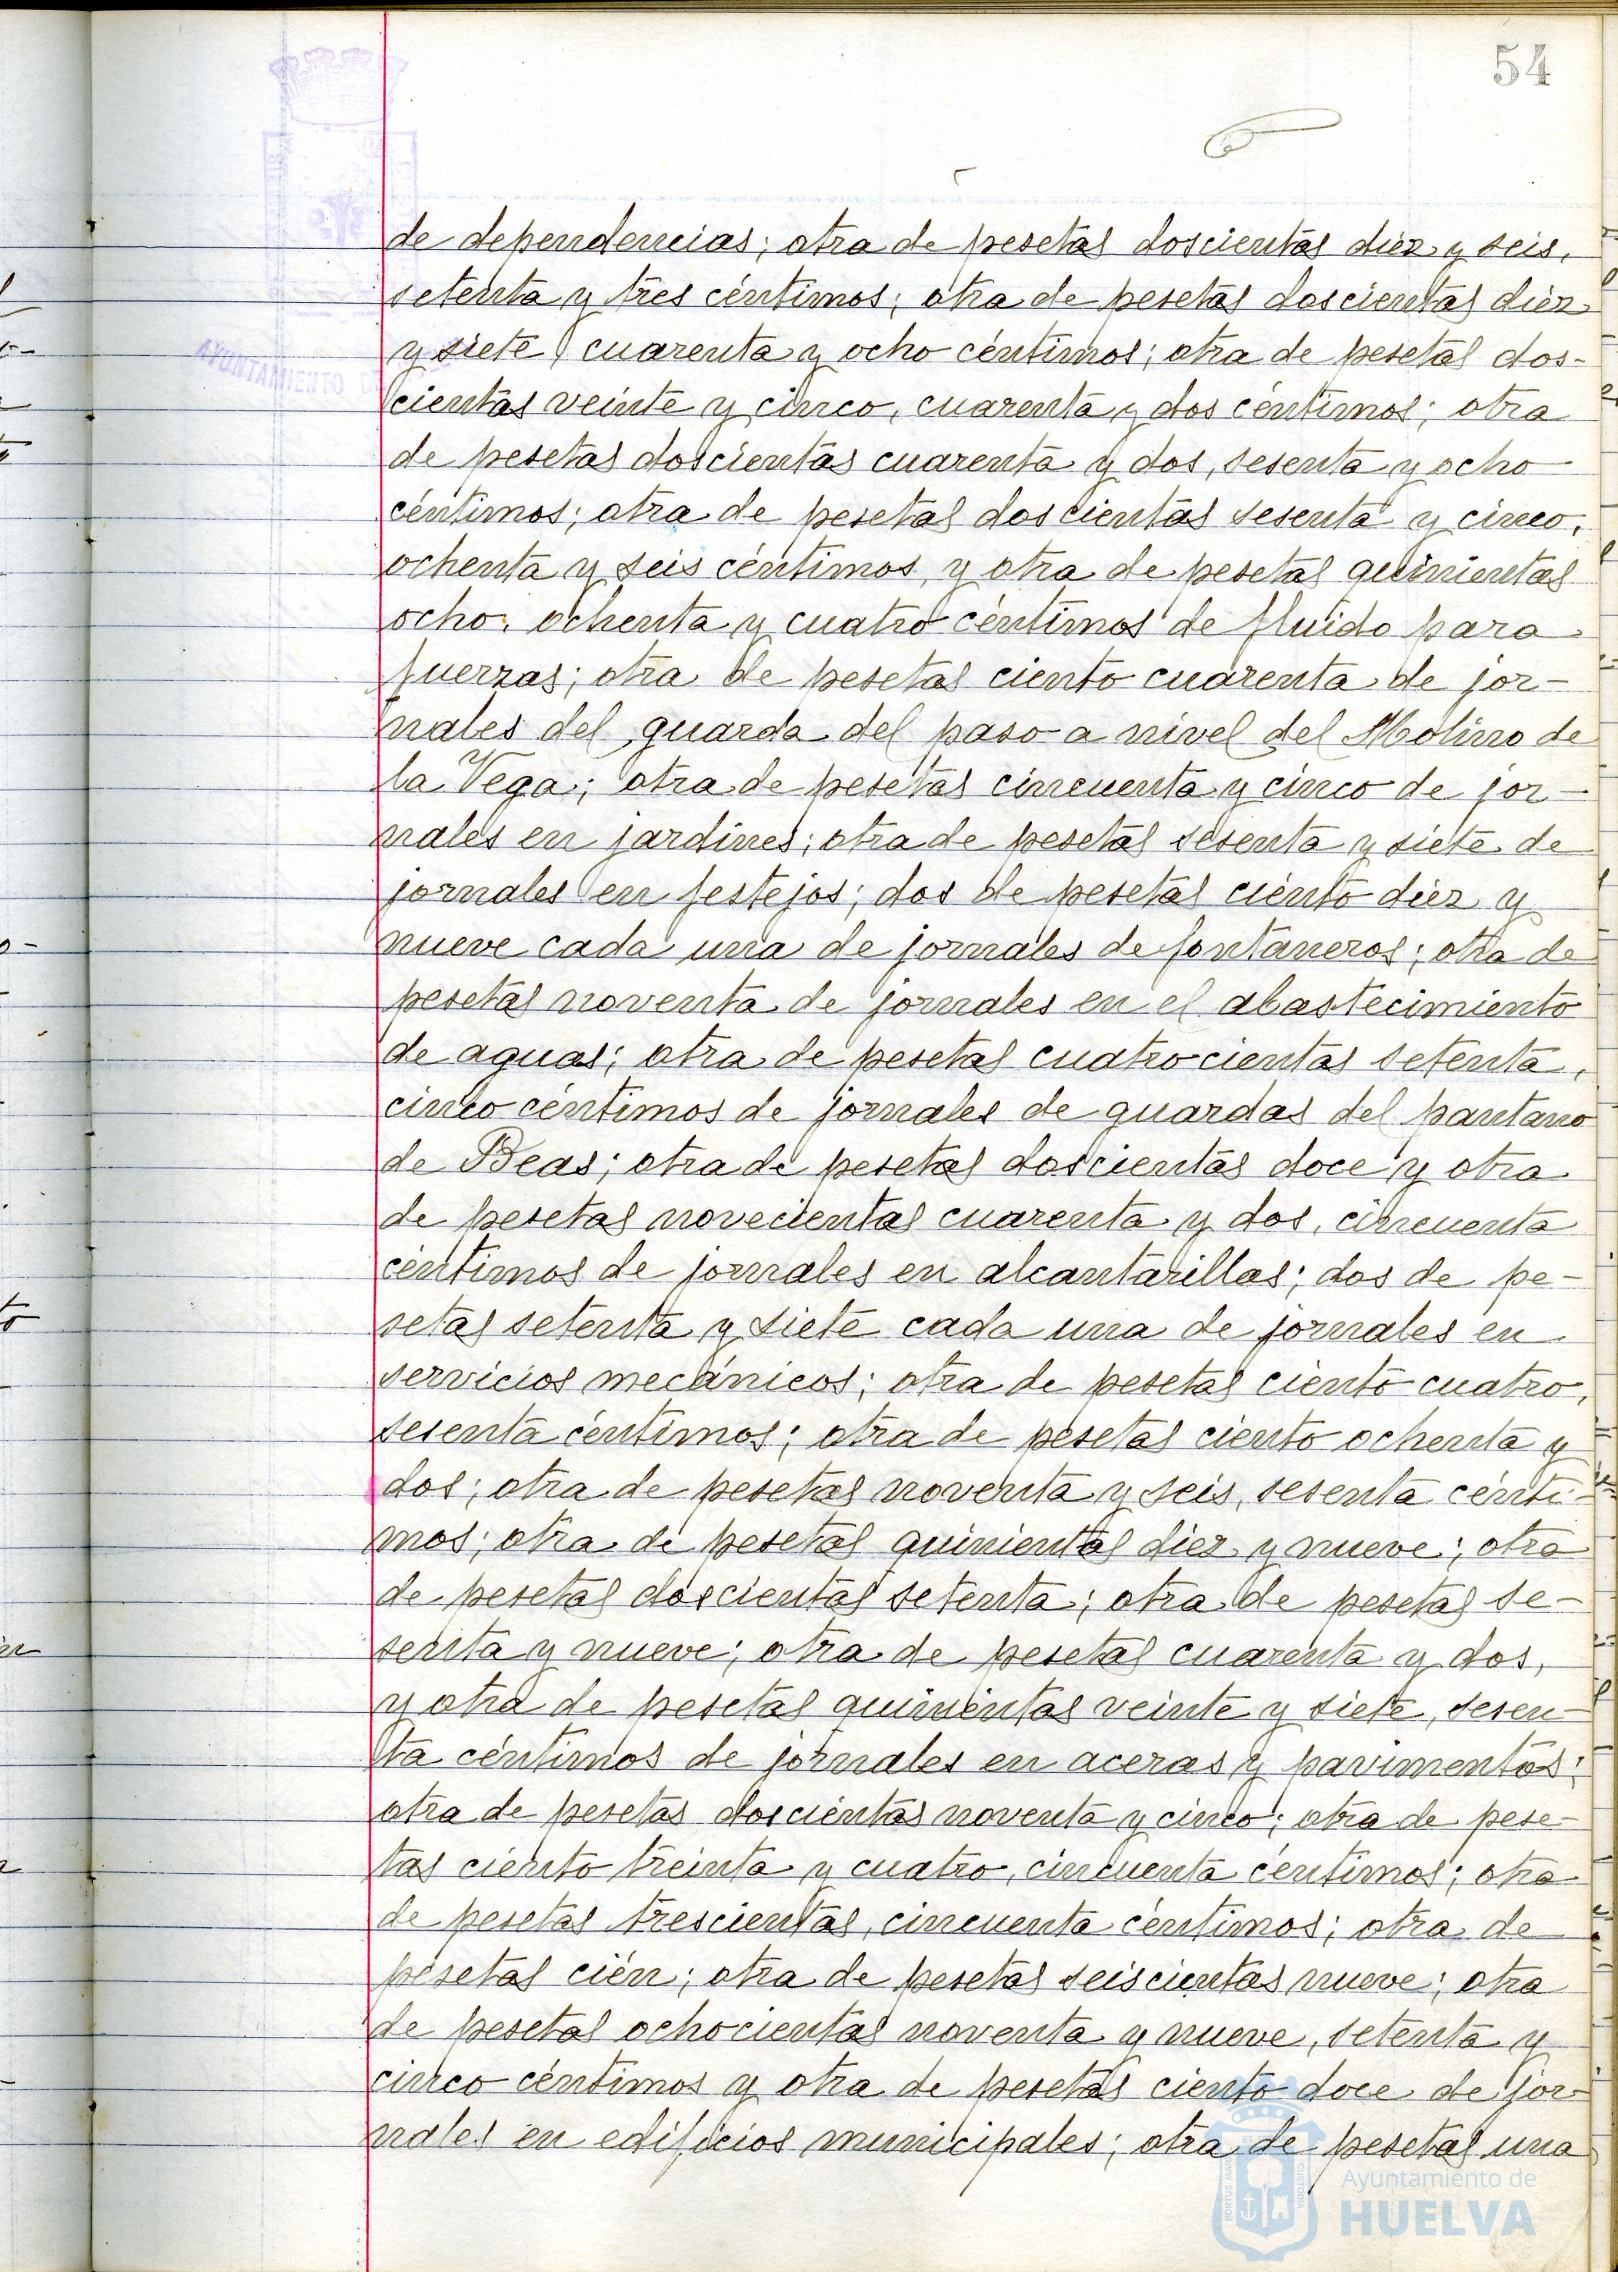 54
AYUNTAMIENTO DE
de dependencias; otra de pesetas doscientas diez y seis,
setenta y tres céntimos; otra de pesetas doscientas diez
y siete, cuarenta y ocho céntimos; otra de pesetas dos-
cientas veinte y cinco, cuarenta y dos céntimos; otra
de pesetas doscientas cuarenta y dos, sesenta y ocho
céntimos; otra de pesetas doscientas sesenta y cinco,
ochenta y seis céntimos, y otra de pesetas quinientas
ocho, ochenta y cuatro céntimos de fluido para
fuerzas; otra de pesetas ciento cuarenta de jor-
nales del guarda del paso a nivel del Molino de
la Vega; otra de pesetas cincuenta y cinco de jor-
nales en jardines; otra de pesetas sesenta y siete de
jornales en festejos; dos de pesetas ciento diez y
nueve cada una de jornales de fontaneros; otra de
pesetas noventa de jornales en el abastecimiento
de aguas; otra de pesetas cuatrocientas setenta,
cinco céntimos de jornales de guardas del pantano
de Beas; otra de pesetas doscientas doce y otra
de pesetas novecientas cuarenta y dos, cincuenta
céntimos de jornales en alcantarillas; dos de pe-
setas setenta y siete cada una de jornales en
servicios mecánicos; otra de pesetas ciento cuatro,
sesenta céntimos; otra de pesetas ciento ochenta y
dos; otra de pesetas noventa y seis, sesenta cénti-
mos; otra de pesetas quinientas diez y nueve; otra
de pesetas doscientas setenta; otra de pesetas se-
senta y nueve; otra de pesetas cuarenta y dos,
y otra de pesetas quinientas veinte y siete, sesen-
ta céntimos de jornales en aceras y pavimentos;
otra de pesetas doscientas noventa y cinco; otra de pese-
tas ciento treinta y cuatro, cincuenta céntimos; otra
de pesetas trescientas, cincuenta céntimos; otra de
pesetas cién; otra de pesetas seiscientas nueve; otra
de pesetas ochocientas noventa y nueve, setenta y
cinco céntimos y otra de pesetas ciento doce de jor-
nales en edificios municipales; otra de pesetas una
Ayuntamiento de
HUELVA